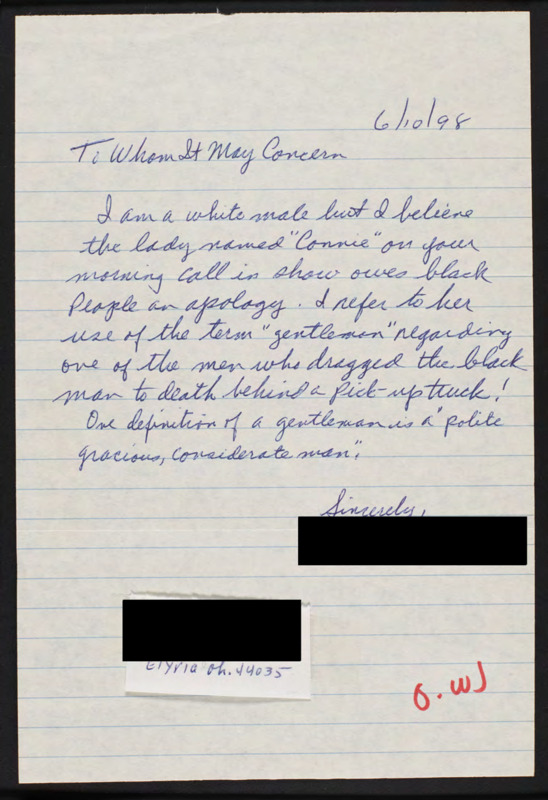 6/10/98
To Whom It May Concern
I am a white male but I believe
the lady named "Connie" on your
morning call in show owes black
People an apology. I refer to her
use of the term "gentleman" regarding
one of the men who dragged the black
man to death behind a pick-up truck!
One definition of a gentleman is a "polite
gracious, considerate man".
Sincerely,
Elyria Oh. 44035
O.W)